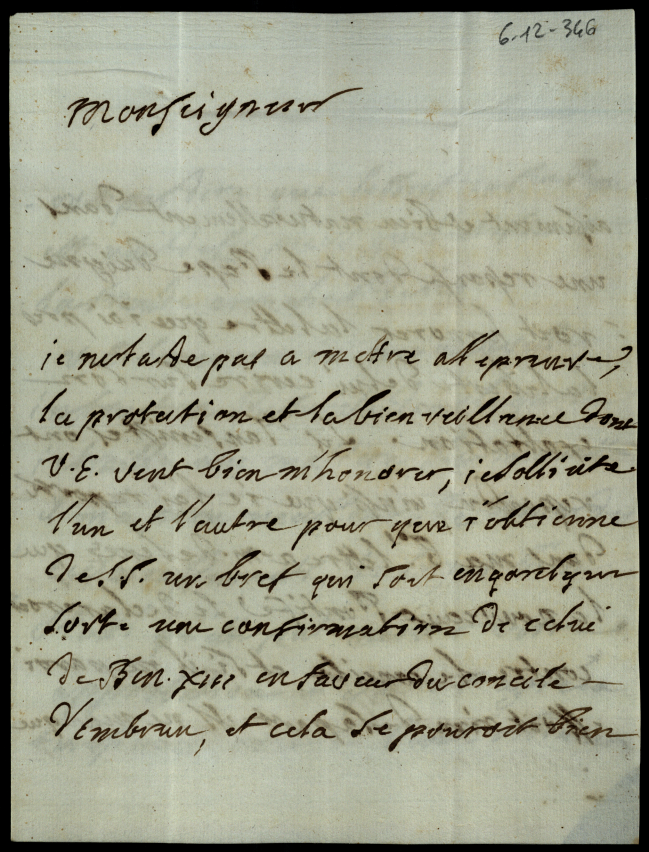 6-12-346
Monseigneur
ie netarde pas a mettre a l'epreuve,
la protection et la bienveillance dont
V. E. veut bien m'honorer, ie sollicite
l'un et l'autre pour que i'obtienne
de S. S. un bref qui soit en quelque
sorte une confirmation de celui
de Ben. XIII en faveur du concile
d'Embrun, et cela se pouroit bien